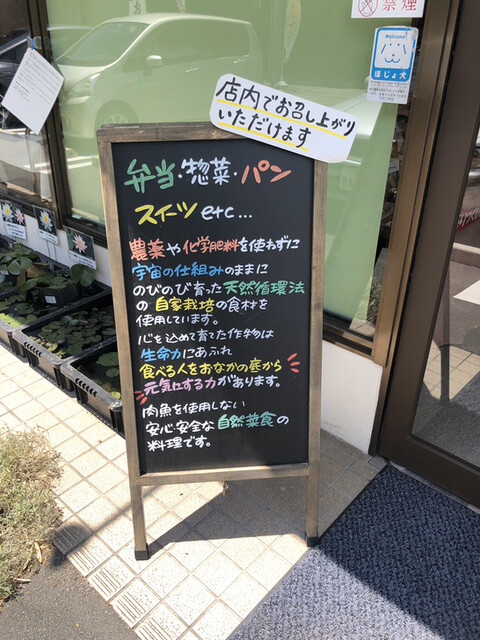 禁煙
Welcome!
ほじょ犬
店内でお召し上がり
いただけます
弁当・惣菜・パン
スイーツ etc...
農薬や化学肥料を使わずに
宇宙の仕組みのままに
のびのび育った天然循環法
の自家栽培の食材を
使用しています。
心を込めて育てた作物は
生命力にあふれ
食べる人をおなかの底から
元気にする力があります。
肉魚を使用しない
安心・安全な自然菜食の
料理です。